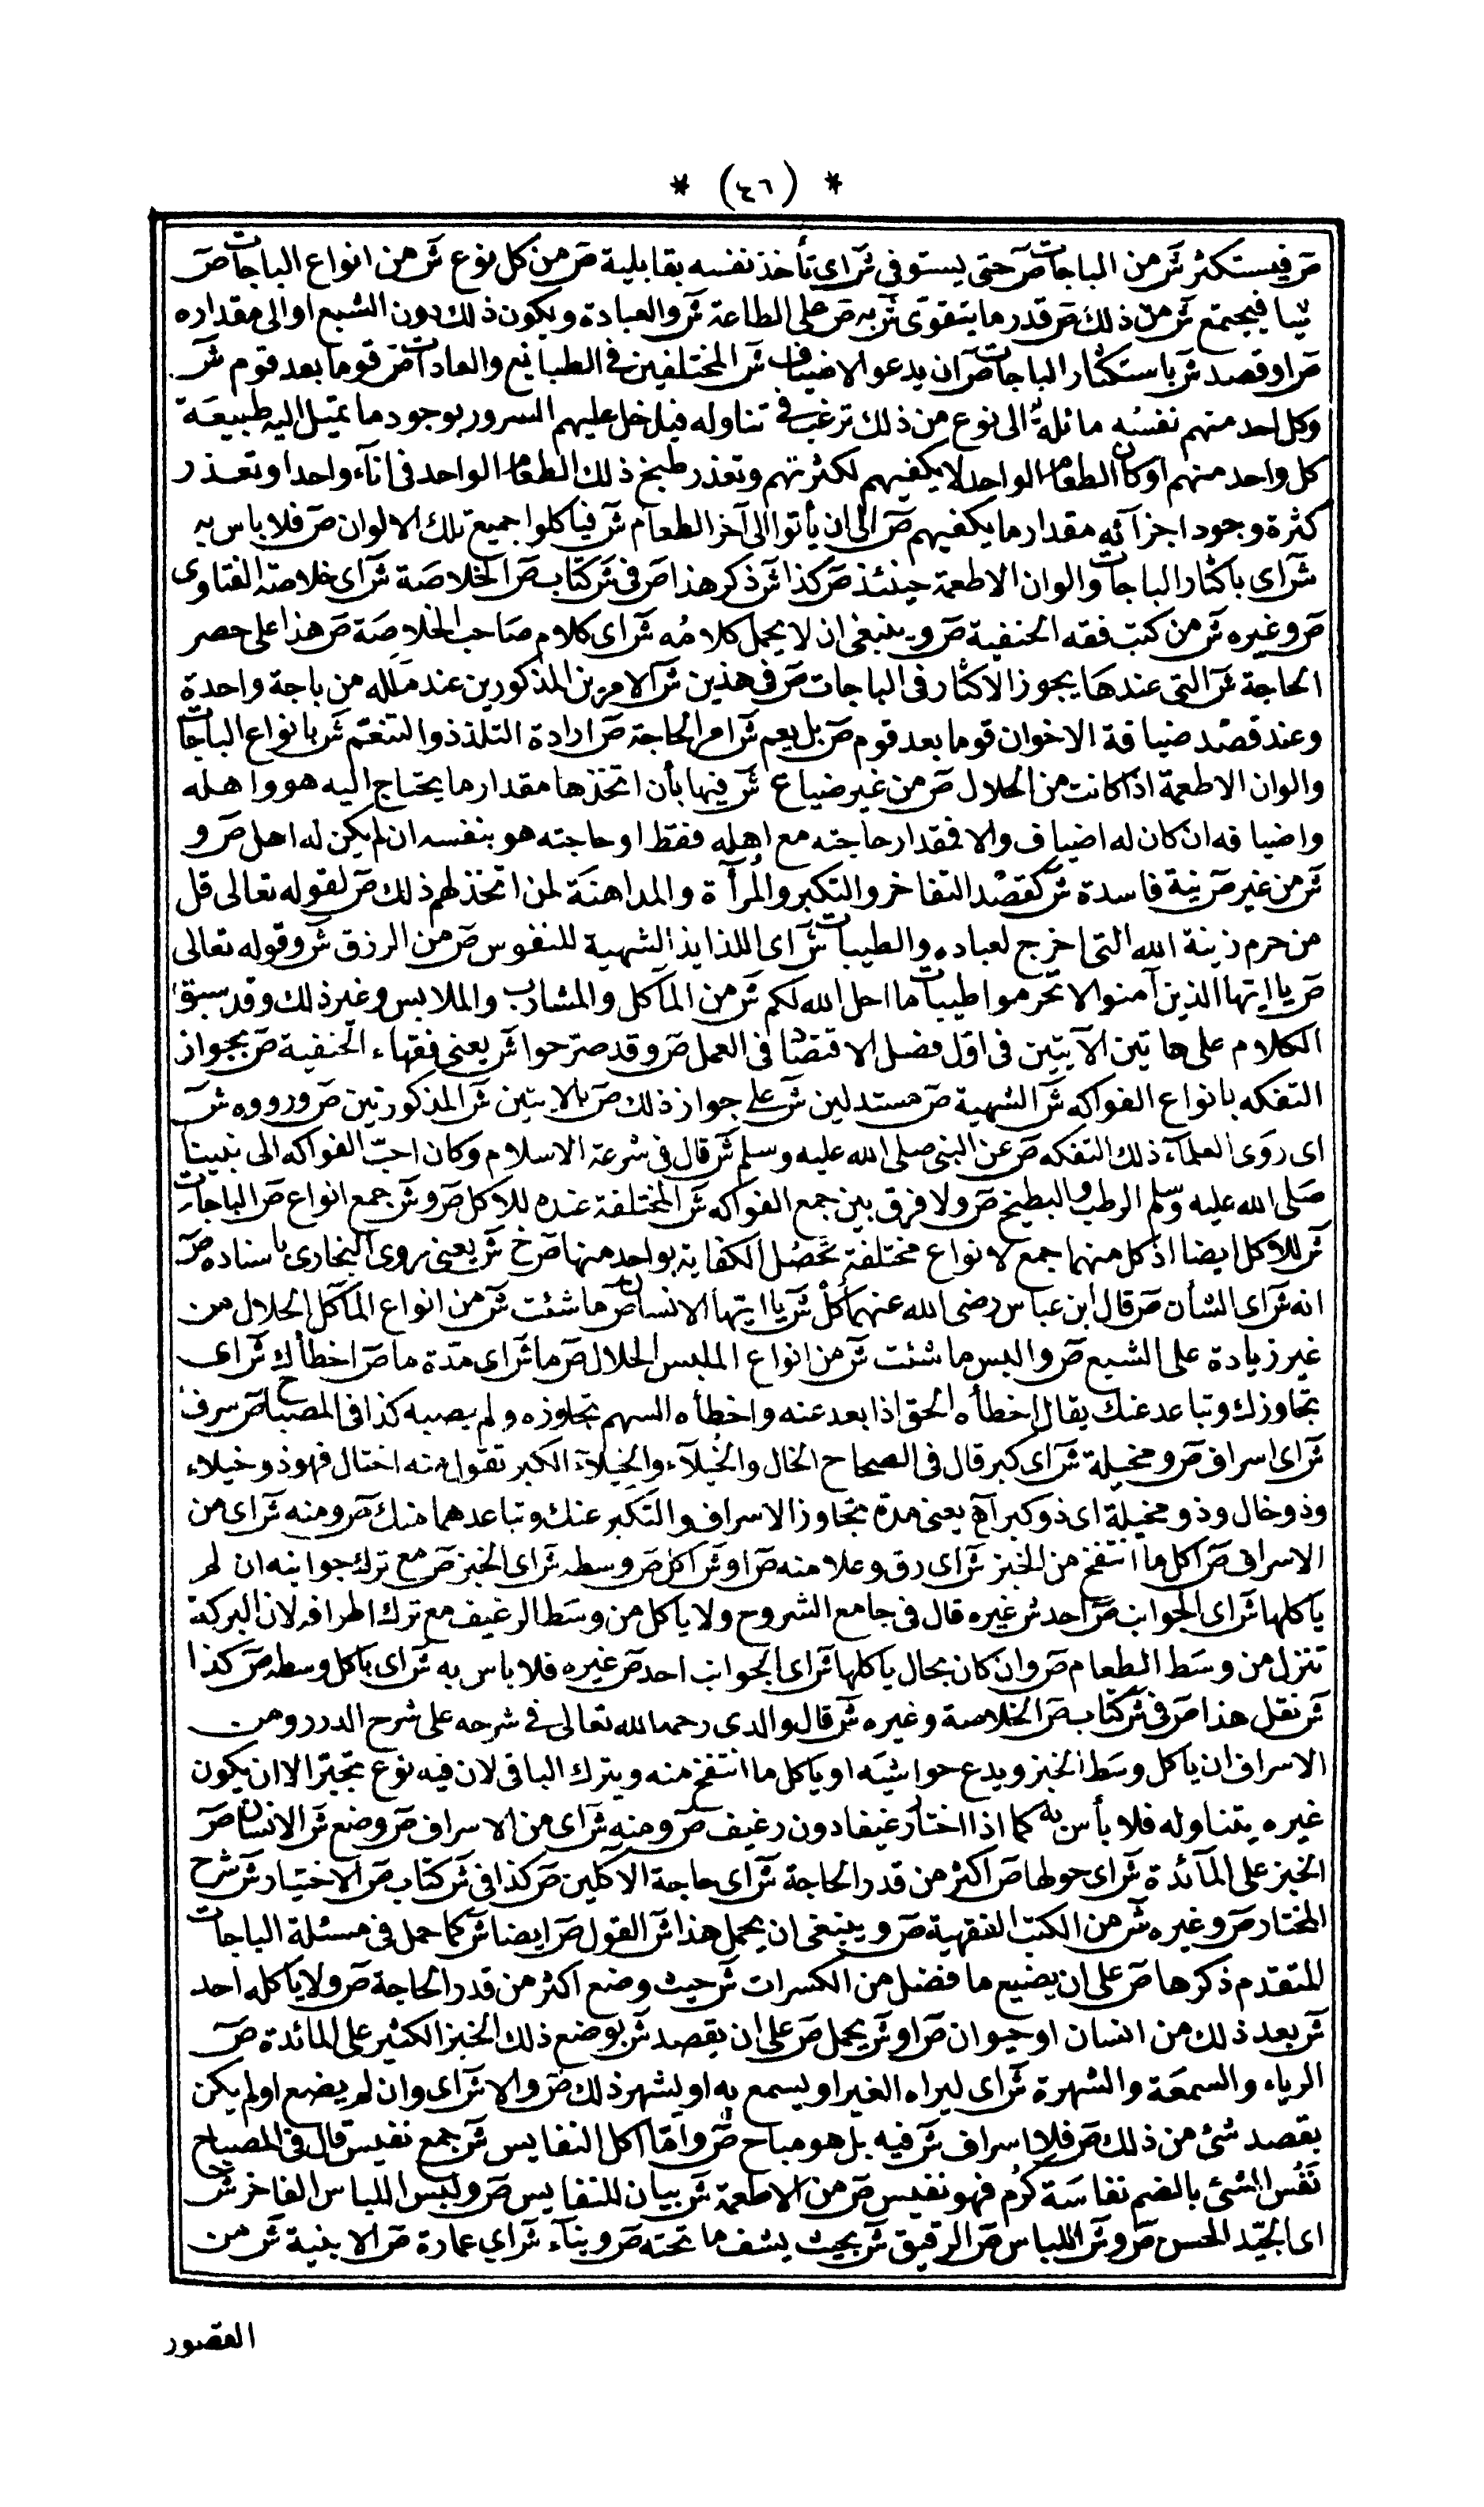 * (٤٦) *
صَ فيستكثر شَ من الباجات صَ حتى يستوفى شَ اى تأخذ نفسه بقابلية صَ من كل نوع شَ من انواع الباجات صَ
شيا فيجتمع شَ من ذلك صَ قدر ما يتقوى شَ به صَ على الطاعة شَ والعبادة ويكون ذلك دون الشبع او الى مقداره
صَ او قصد شَ باستكثار الباجات صَ ان يدعو الاضياف شَ المختلفين فى الطبائع والعادات صَ قوما بعد قوم شَ
وكل احد منهم نفسُه مائلةٌ الى نوع من ذلك ترغب فى تناوله فيدخل عليهم السرور بوجود ما تميل اليه طبيعة
كل واحد منهم او كان الطعام الواحد لا يكفيهم لكثرتهم وتعذر طبخ ذلك الطعام الواحد فى انآء واحد او تعذر
كثرة وجود اجزآئه مقدار ما يكفيهم صَ الى ان يأتوا الى آخر الطعام شَ فياكلوا جميع تلك الالوان صَ فلا باس به
شَ اى باكثار الباجات والوان الاطعمة حينئذ صَ كذا شَ ذكر هذا صَ فى شَ كتاب صَ الخلاصة شَ اى خلاصة الفتاوى
صَ وغيره شَ من كتب فقه الحنفية صَ وينبغى ان لا يحمل كلامُه شَ اى كلام صاحب الخلاصة صَ هذا على حصر
الحاجة شَ التى عندها يجوز الاكثار فى الباجات صَ فى هذين شَ الامرين المذكورين عند ملله من باجة واحدة
وعند قصد ضيافة الاخوان قوما بعد قوم صَ بل يعم شَ امر الحاجة صَ ارادة التلذذ والتنعّم شَ بانواع الباجات
والوان الاطعمة اذا كانت من الحلال صَ من غير ضياع شَ فيها بأن اتخذها مقدار ما يحتاج اليه هو واهله
واضيافه ان كان له اضياف والا فمقدار حاجته مع اهله فقط او حاجته هو بنفسه ان لم يكن له اهل صَ و
شَ من غير صَ نية فاسدة شَ كقصد التفاخر والتكبر والمُرأة والمداهنَة لمن اتخذ لهم ذلك صَ لقوله تعالى قل
من حرم زينة الله التى اخرج لعباده والطيبات شَ اى اللذايذ الشهية للنفوس صَ من الرزق شَ وقوله تعالى
صَ يا ايها الذين آمنوا لا تحرموا طيبات ما احل الله لكم شَ من المآكل والمشارب والملابس وغير ذلك وقد سبق
الكلام على هاتين الآيتين فى اوّل فصل الاقتصاد فى العمل صَ وقد صرّحوا شَ يعنى فقهاء الحنفية صَ بجواز
التفكه بانواع الفواكه شَ الشهية صَ مستدلين شَ على جواز ذلك صَ بالايتين شَ المذكورتين صَ ورووه شَ
اى روَى العلمآء ذلك التفكه صَ عن النبى صلى الله عليه وسلم شَ قال فى شرعة الاسلام وكان احبّ الفواكه الى نبينا
صَلى الله عليه وسلم الرطب والبطيخ صَ ولا فرق بين جمع الفواكه شَ المختلفة عنده للاكل صَ و شَ جمع انواع صَ الباجات
شَ للاكل ايضا اذ كل منهما جمع لانواع مختلفةٍ تحصُل الكفاية بواحد منها صَ خ شَ يعنى روى البخارى باسناده صَ
انه شَ اى الشأن صَ قال ابن عباس رضى الله عنهما كُلْ شَ يا ايتها الانسان صَ ما شئت شَ من انواع المآكل الحلال من
غير زيادة على الشبع صَ والبس ما شئت شَ من انواع الملبس الحلال صَ ما شَ اى مدّة ما صَ اخطأك شَ اى
تجاوزك وتباعد عنك يقال اخطأه الحق اذا بعد عنه واخطأه السهم تجاوزه ولم يصبه كذا فى المصباح صَ سرف
شَ اى اسراف صَ ومخيلة شَ اى كبر قال فى الصحاح الخال والخُيلآء والخِيلآء الكبر تقول منه اختال فهو ذو خيلاء
وذو خال وذو مخيلة اى ذو كبر آه يعنى مدة تجاوز الاسراف والتكبر عنك وتباعدهما منك صَ ومنه شَ اى من
الاسراف صَ اكل ما انتفخ من الخبز شَ اى رق وعلا منه صَ او شَ اكل صَ وسطه شَ اى الخبز صَ مع ترك جوانبه ان لم
ياكلها شَ اى الجوانب صَ احد شَ غيره قال فى جامع الشروح ولا ياكل من وسَط الرغيف مع ترك اطرافه لان البركة
تنزل من وسَط الطعام صَ وان كان بحال ياكلها شَ اى الجوانب احد صَ غيره فلا باس به شَ اى باكل وسطه صَ كذا
شَ نقل هذا صَ فى شَ كتاب صَ الخلاصة وغيره شَ قال والدى رحمه الله تعالى فى شرحه على شرح الدرر ومن
الاسراف ان ياكل وسَط الخبز ويدع حواشيَه او ياكل ما انتفخ منه ويترك الباقى لان فيه نوع تجبّر الا ان يكون
غيره يتناوله فلا بأس به كما اذا اختار رغيفا دون رغيف صَ ومنه شَ اى من الاسراف صَ وضع شَ الانسان صَ
الخبز على المآئدة شَ اى حولها صَ اكثر من قدر الحاجة شَ اى حاجة الآكلين صَ كذا فى شَ كتاب صَ الاختيار شَ شرح
المختار صَ وغيره شَ من الكتب الفقهية صَ وينبغى ان يحمل هذا شَ القول صَ ايضا شَ كما حمل فى مسئلة الباجات
المتقدم ذكرها صَ على ان يضيع ما فضل من الكسرات شَ حيث وضع اكثر من قدر الحاجة صَ ولا ياكله احد
شَ بعد ذلك من انسان او حيوان صَ او شَ يحمل صَ على ان يقصد شَ بوضع ذلك الخبز الكثير على المائدة صَ
الرياء والسمعَة والشهرة شَ اى ليراه الغير او ليسمع به او ليشهر ذلك صَ والا شَ اى وان لم يضع او لم يكن
بقصد شئ من ذلك صَ فلا اسراف شَ فيه بل هو مباح صَ وامّا اكل النفايس شَ جمع نفيس قال فى المصباح
نَفُس الشئ بالضم نفاسَة كرُم فهو نفيس صَ من الاطعمة شَ بيان للنفايس صَ ولبس اللباس الفاخر شَ
اى الجيّد الحسن صَ و شَ اللباس صَ الرقيق شَ بحيث يشف ما تحته صَ وبنآء شَ اي عمارة صَ الابنية شَ من
القصور